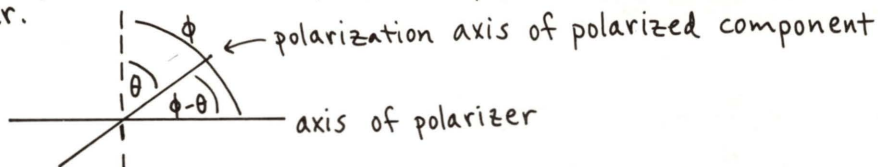 r.
ϕ
polarization axis of polarized component
θ
ϕ-θ
axis of polarizer